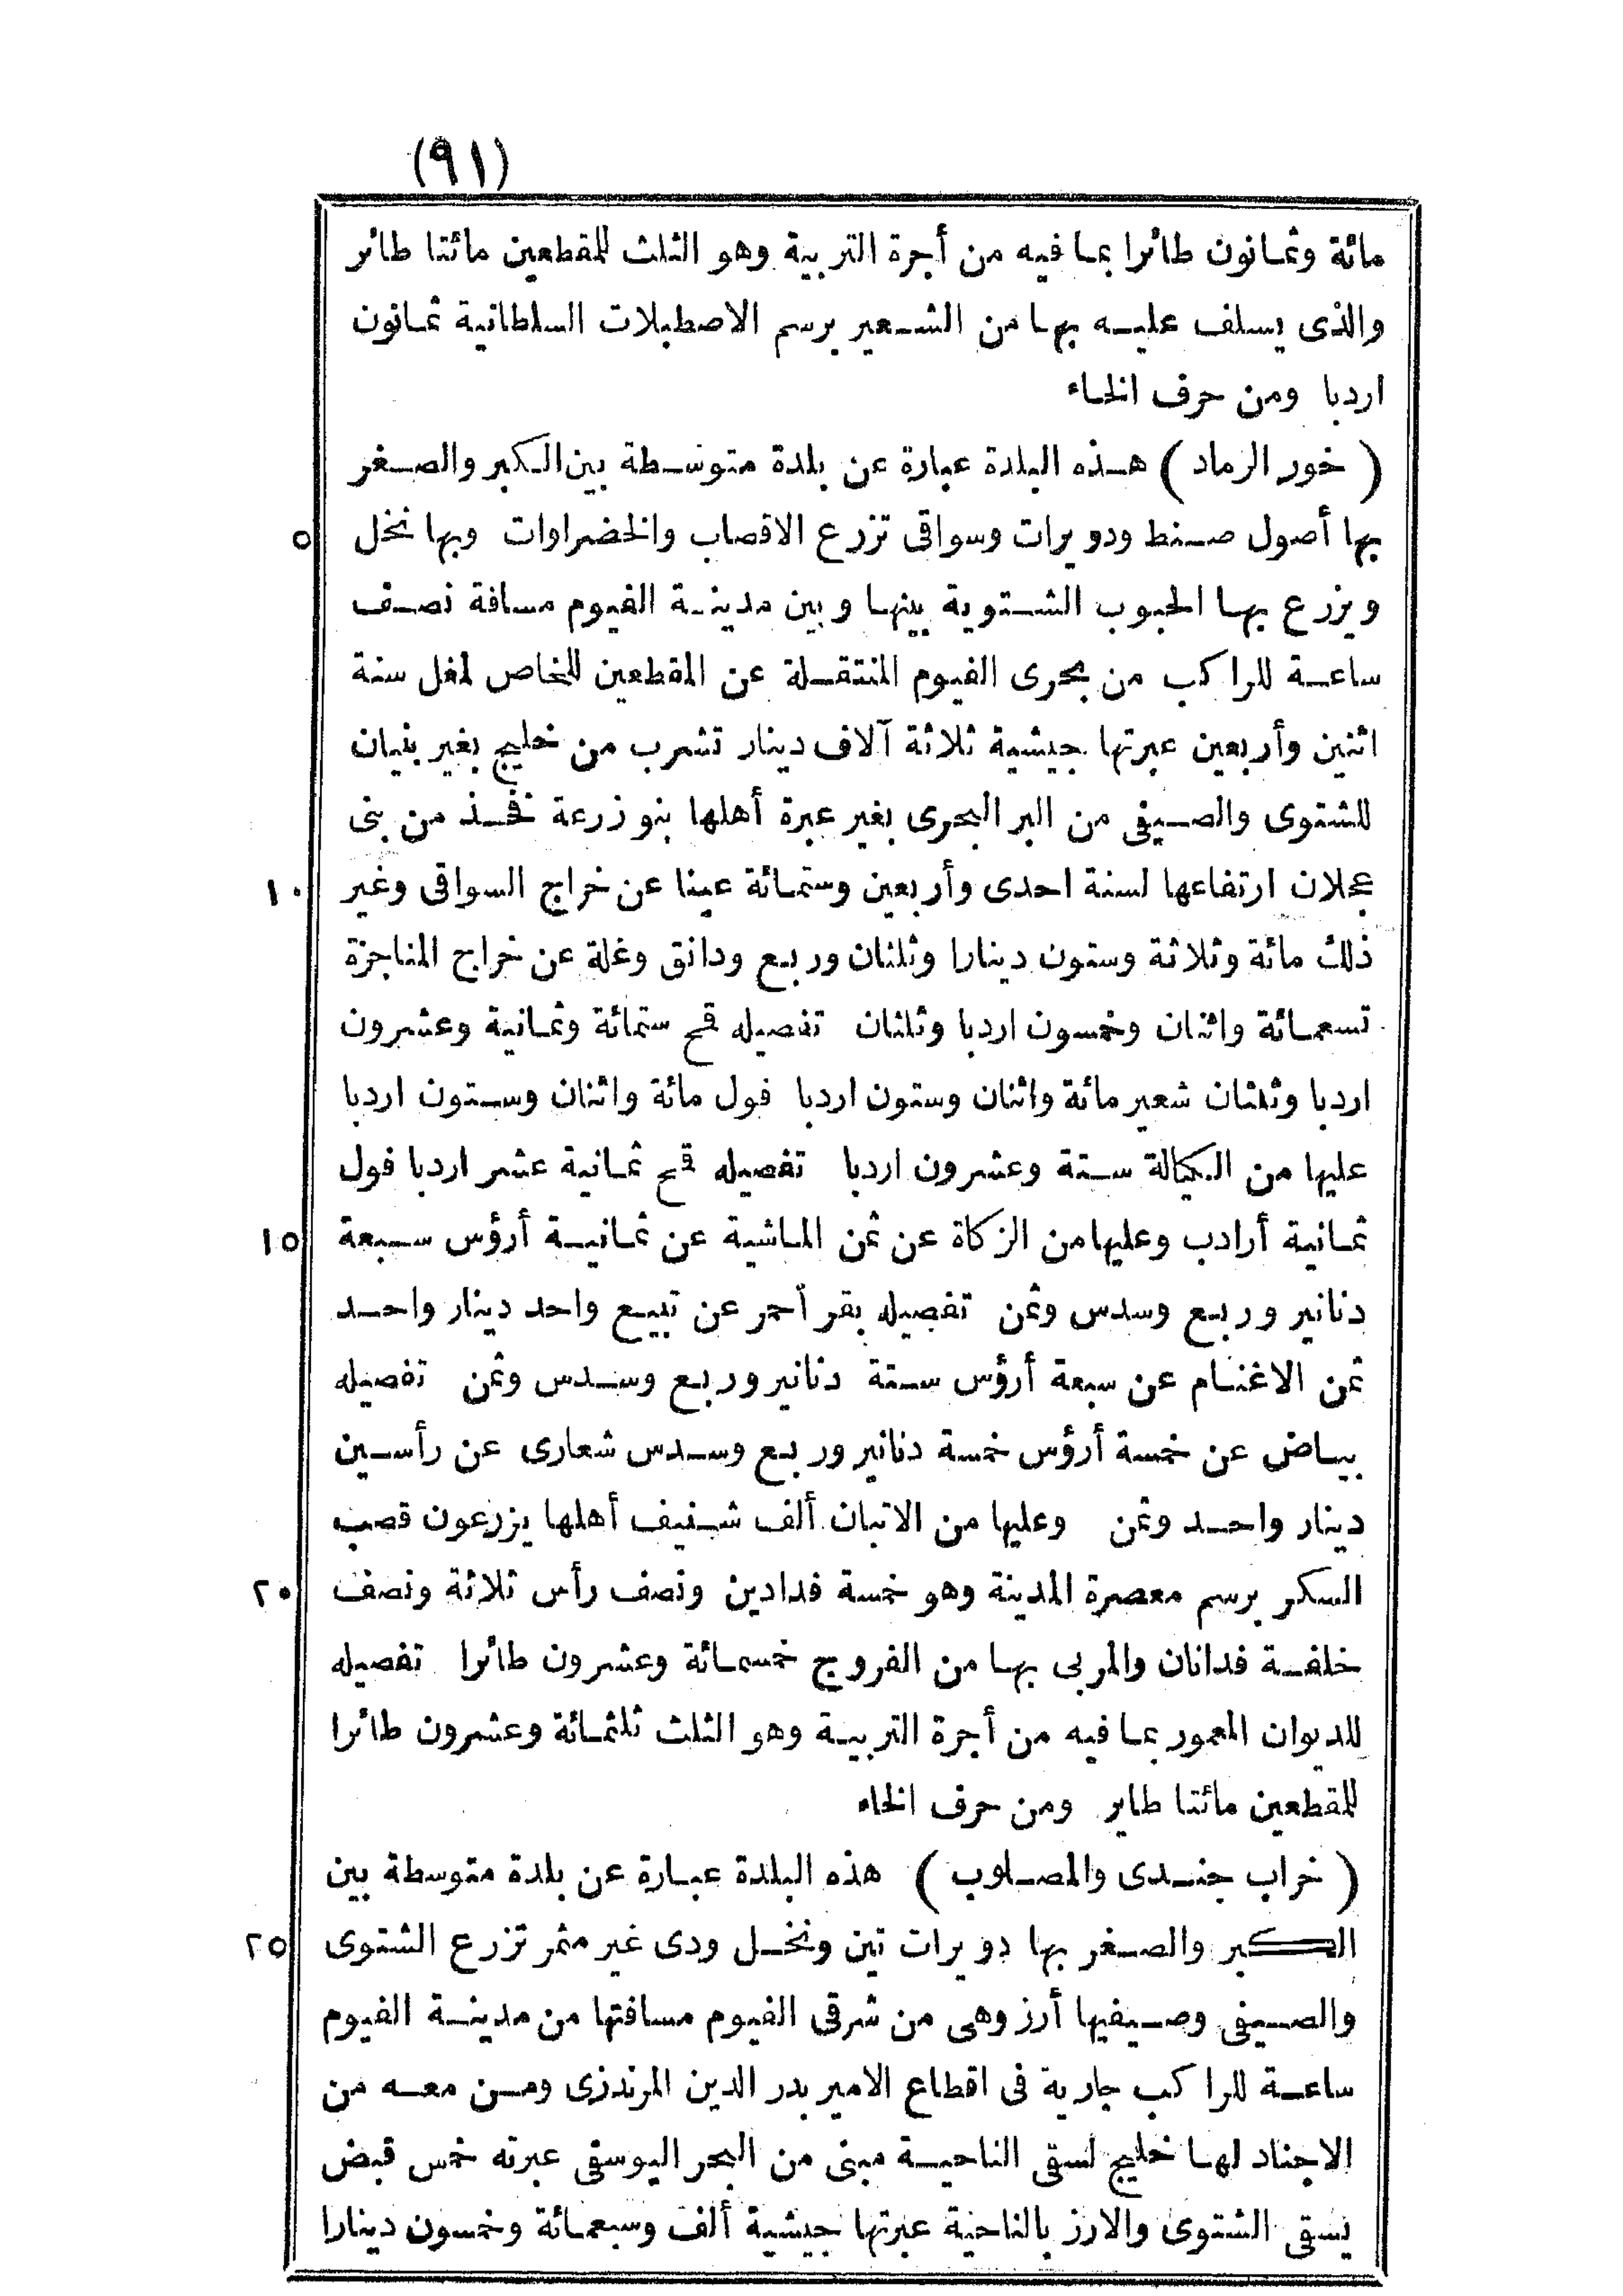 (٩١)
مائة وثمانون طائرا بما فيه من أجرة التربية وهو الثلث للمقطعين مائتا طائر
والذى يسلف عليه بها من الشعير برسم الاصطبلات السلطانية ثمانون
اردبا ومن حرف الخاء
( خور الرماد ) هذه البلدة عبارة عن بلدة متوسطة بين الكبر والصغر
٥ بها أصول صنط ودويرات وسواقى تزرع الاقصاب والخضراوات وبها نخل
ويزرع بها الحبوب الشتوية بينها وبين مدينة الفيوم مسافة نصف
ساعة للراكب من بحرى الفيوم المنتقلة عن المقطعين للخاص لمغل سنة
اثنين وأربعين عبرتها جيشية ثلاثة آلاف دينار تشرب من خليج بغير بنيان
للشتوى والصيفى من البر البحرى بغير عبرة أهلها بنو زرعة فخذ من بنى
١٠ عجلان ارتفاعها لسنة احدى وأربعين وستمائة عينا عن خراج السواقى وغير
ذلك مائة وثلاثة وستون دينارا وثلثان وربع ودانق وغلة عن خراج المناجزة
تسعمائة واثنان وخمسون اردبا وثلثان تفصيله قمح ستمائة وثمانية وعشرون
اردبا وثلثان شعير مائة واثنان وستون اردبا فول مائة واثنان وستون اردبا
عليها من الكيالة ستة وعشرون اردبا تفصيله قمح ثمانية عشر اردبا فول
١٥ ثمانية أرادب وعليها من الزكاة عن ثمن الماشية عن ثمانية أرؤس سبعة
دنانير وربع وسدس وثمن تفصيله بقر أحمر عن تبيع واحد دينار واحد
ثمن الاغنام عن سبعة أرؤس ستة دنانير وربع وسدس وثمن تفصيله
بياض عن خمسة أرؤس خمسة دنانير وربع وسدس شعارى عن رأسين
دينار واحد وثمن وعليها من الاتبان ألف شنيف أهلها يزرعون قصب
٢٠ السكر برسم معصرة المدينة وهو خمسة فدادين ونصف رأس ثلاثة ونصف
خلفة فدانان والمربى بها من الفروج خمسمائة وعشرون طائرا تفصيله
للديوان المعمور بما فيه من أجرة التربية وهو الثلث ثلثمائة وعشرون طائرا
للمقطعين مائتا طاير ومن حرف الخاء
( خراب جندى والمصلوب ) هذه البلدة عبارة عن بلدة متوسطة بين
٢٥ الكبر والصغر بها دويرات تين ونخل ودى غير مثمر تزرع الشتوى
والصيفى وصيفيها أرز وهى من شرقى الفيوم مسافتها من مدينة الفيوم
ساعة للراكب جارية فى اقطاع الامير بدر الدين المرندزى ومن معه من
الاجناد لها خليج لسقى الناحية مبنى من البحر اليوسفى عبرته خمس قبض
يسقى الشتوى والارز بالناحية عبرتها جيشية ألف وسبعمائة وخمسون دينارا